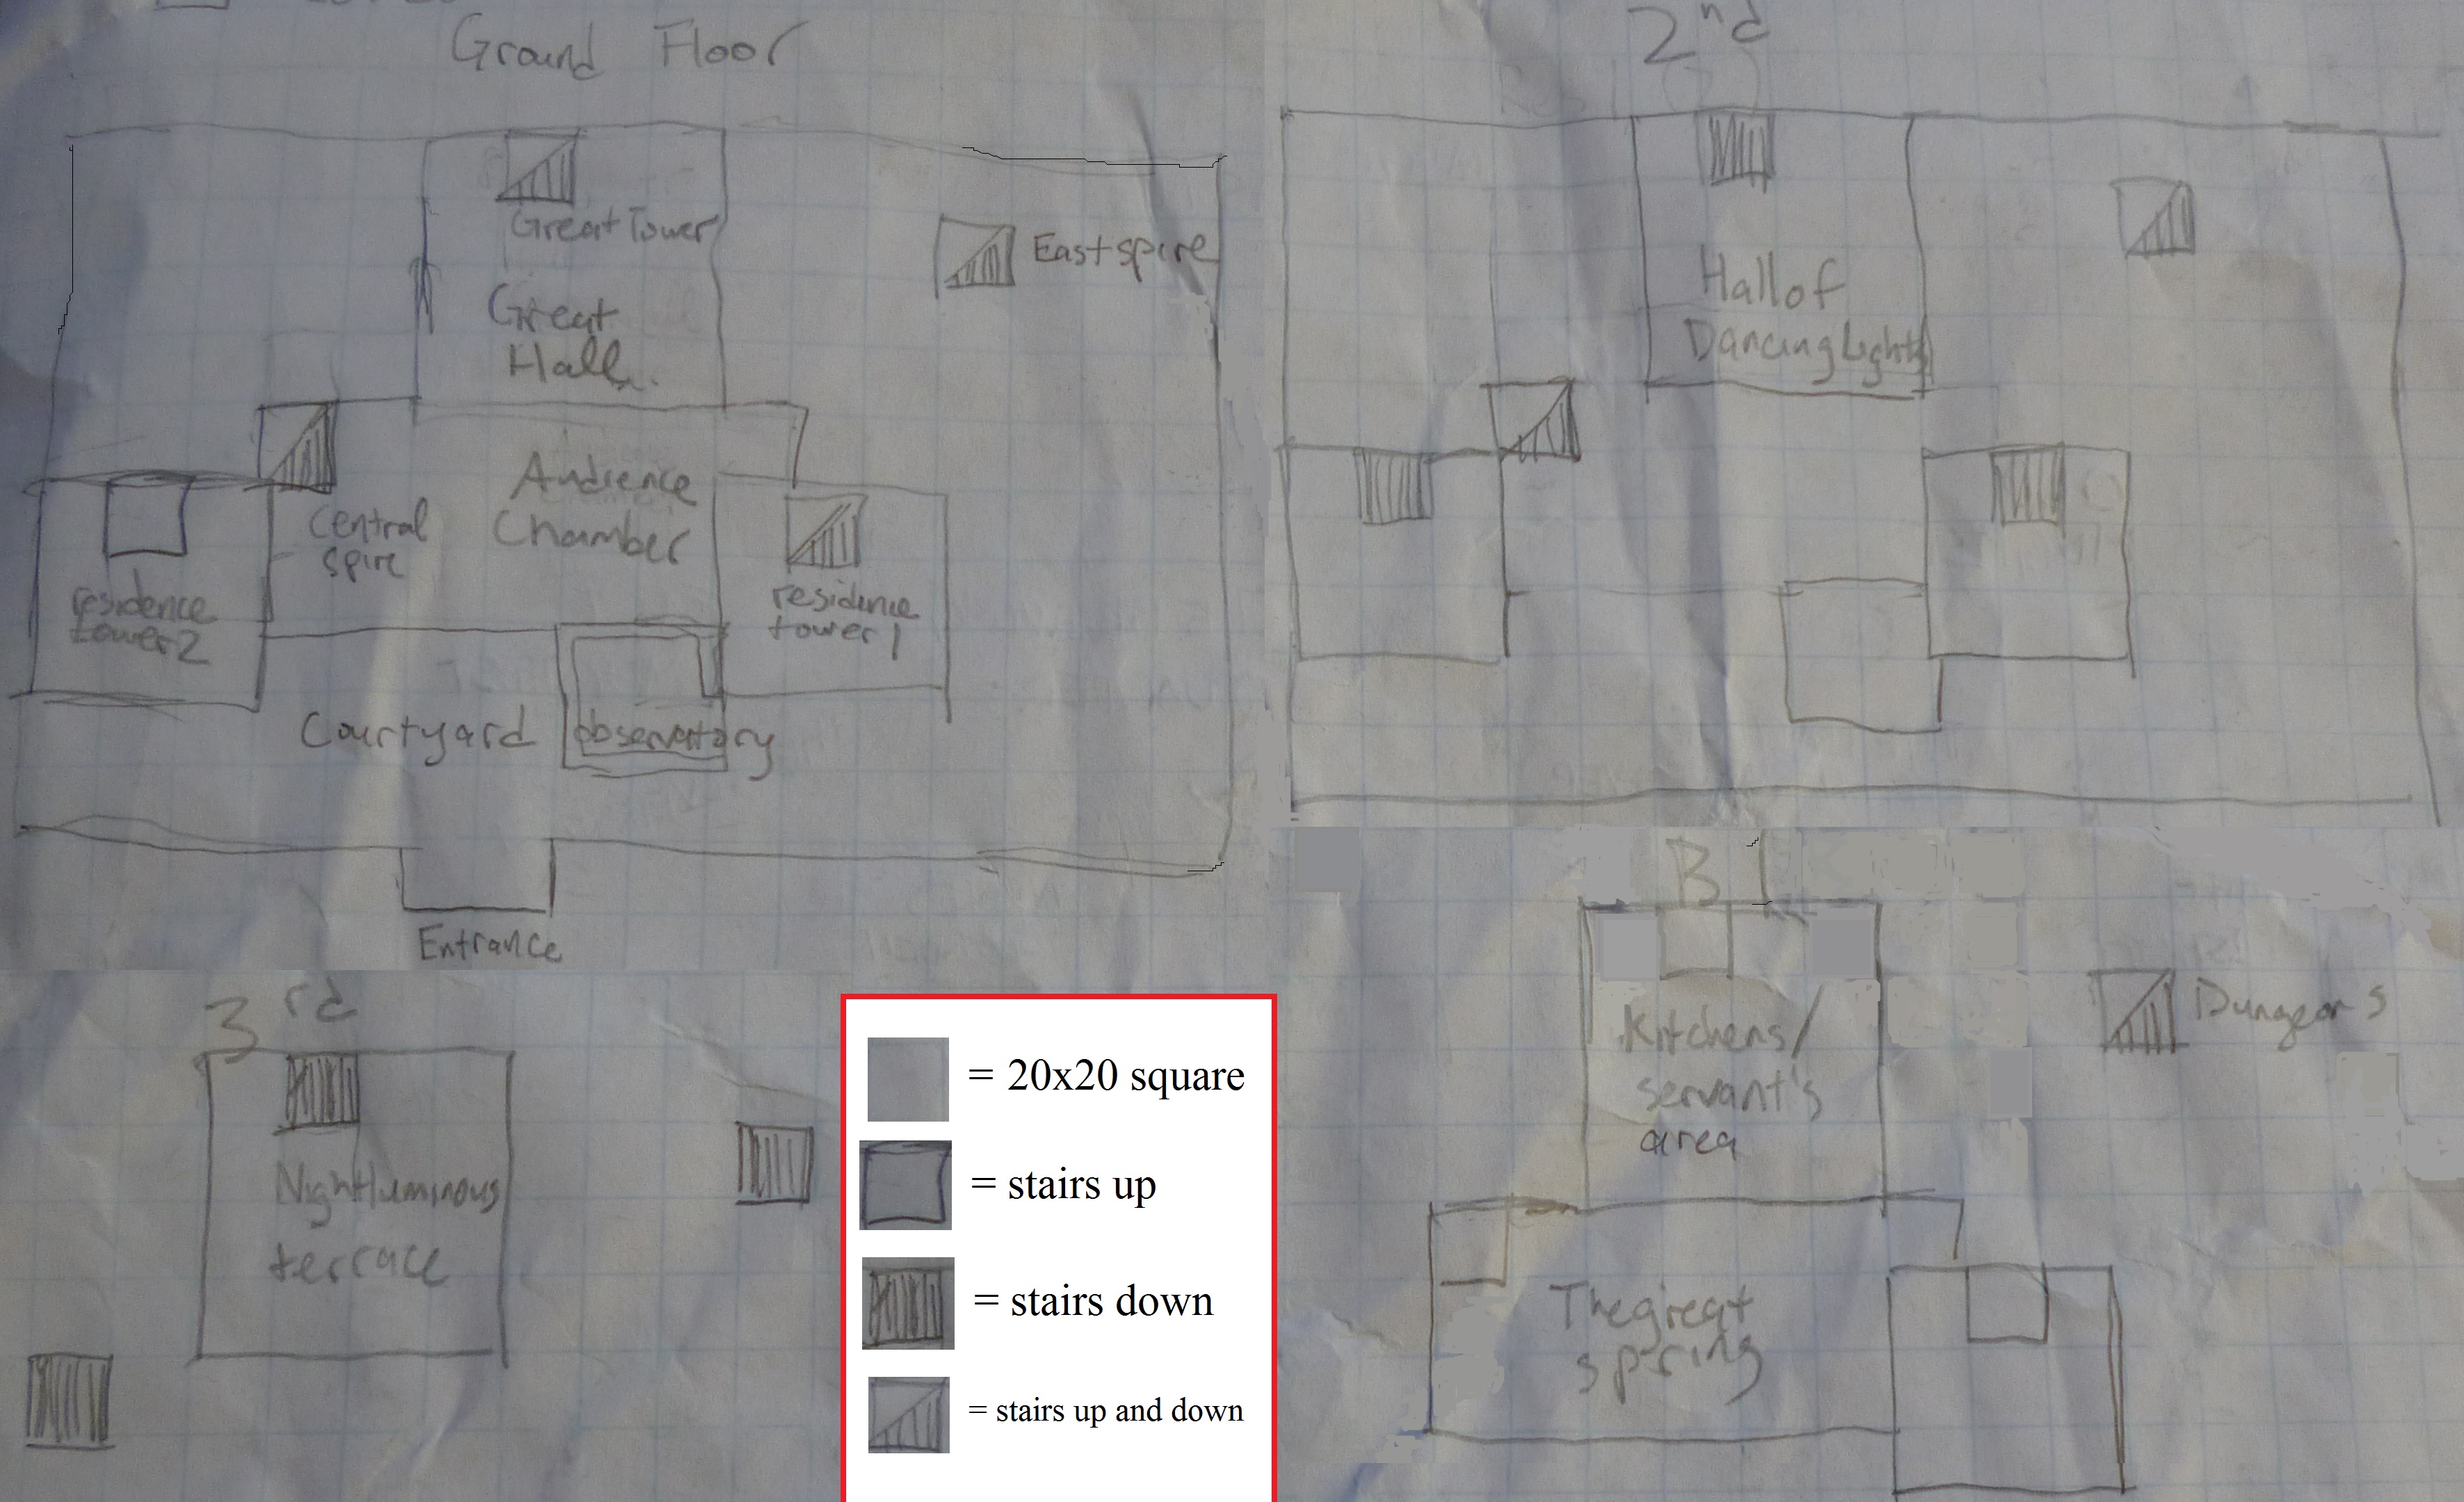 Ground Floor
Great Tower
East spire
Great
Hall
Audience
Chamber
Central
spire
residence
tower 2
residence
tower 1
Courtyard
observatory
Entrance
2nd
Hall of
Dancing Lights
3rd
Nightluminous
terrace
= 20x20 square
= stairs up
= stairs down
= stairs up and down
B1
Kitchens/
servant's
area
Dungeons
The great
spring